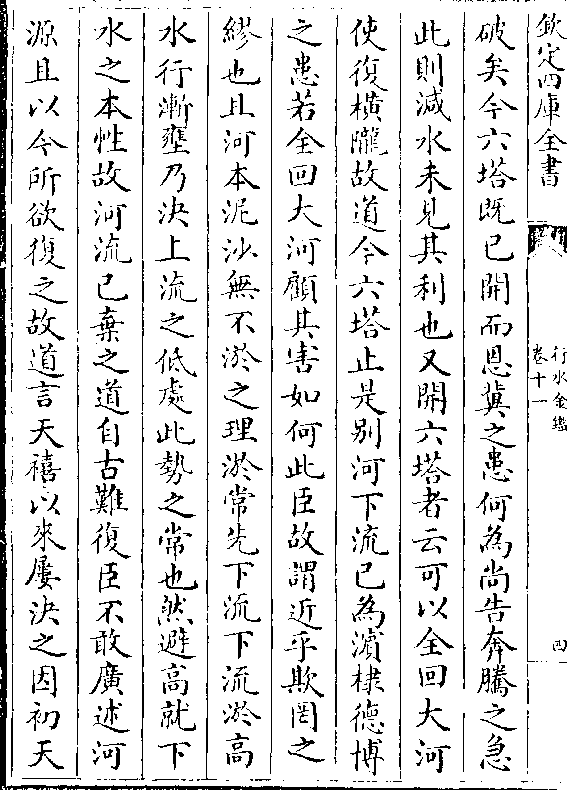 欽定四庫全書
行水金鑑
卷十一
四
破矣今六塔既已開而恩冀之患何為尚告奔騰之急
此則減水未見其利也又開六塔者云可以全回大河
使復橫隴故道今六塔止是别河下流已為濵棣德博
之患若全回大河顧其害如何此臣故謂近乎欺罔之
繆也且河本泥沙無不淤之理淤常先下流下流淤高
水行漸壅乃決上流之低處此勢之常也然避高就下
水之本性故河流已棄之道自古難復臣不敢廣述河
源且以今所欲復之故道言天禧以來屢決之因初天